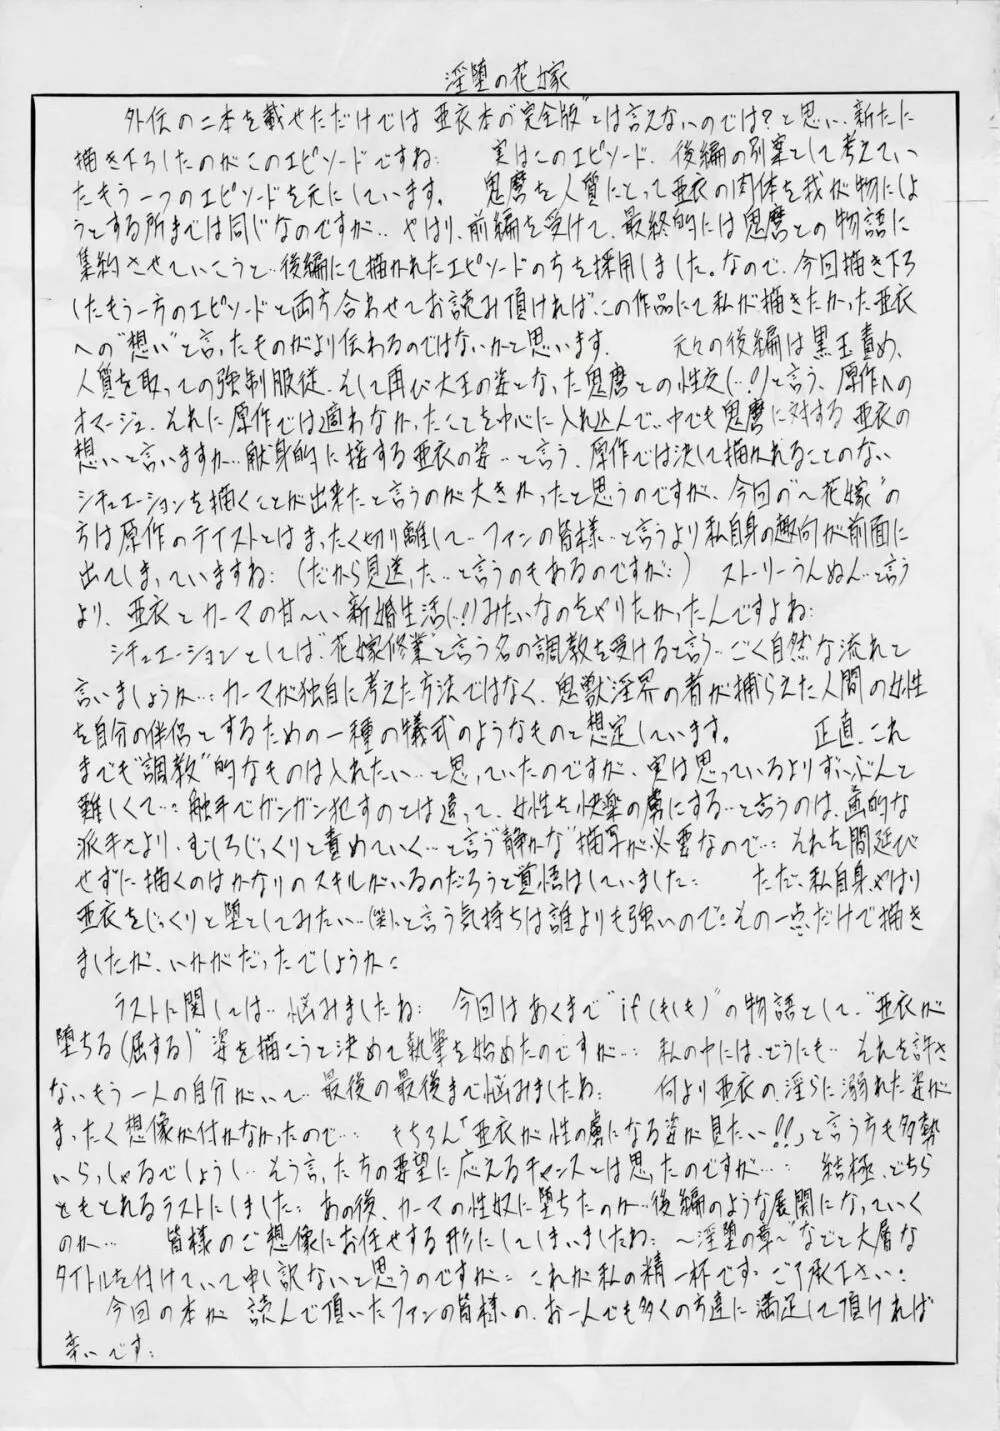 淫堕の花嫁
外伝の二本を載せただけでは 亜衣本の"完全版"とは言えないのでは?と思い、新たに
描き下ろしたのがこのエピソードですね: 実はこのエピソード、後編の別案として考えてい
たもう一つのエピソードを元にしています。 鬼麿を人質にとって亜衣の肉体を我が物にしよ
うとする所までは同じなのですが‥ やはり、前編を受けて、最終的には鬼麿との物語に
集約させていこうと‥後編にて描かれたエピソードの方を採用しました。なので、今回描き下ろ
したもう一方のエピソードと両方合わせてお読み頂ければ、この作品にて私が描きたかった亜衣
への"想い"と言ったものがより伝わるのではないかと思います. 元々の後編は黒玉責め、
人質を取っての強制服従、そして再び大王の姿となった鬼麿との性交(…!!)と言う、原作への
オマージュ、それに原作では適わなかったことを中心に入れ込んで‥中でも鬼麿に対する亜衣の
想いと言いますか‥献身的に接する亜衣の姿‥と言う、原作では決して描かれることのない
シチュエーションを描くことが出来たと言うのが大きかったと思うのですが、今回の"〜花嫁"の
方は原作のテイストとはまったく切り離して‥ファンの皆様‥と言うより私自身の趣向が前面に
出てしまっていますね: (だから見送った‥と言うのもあるのですが:) ストーリーうんぬん‥と言う
より、亜衣とカーマの甘〜い新婚生活(!!)みたいなのをやりたかったんですよね:
シチュエーションとしては"花嫁修業"と言う名の調教を受けると言う‥ごく自然な流れと
言いましょうか…:カーマが独自に考えた方法ではなく、鬼獣淫界の者が捕らえた人間の女性
を自分の伴侶とするための一種の儀式のようなものと想定しています。 正直、これ
までも"調教"的なものは入れたい‥と思っていたのですが、実は思っているよりずいぶんと
難しくて…:触手でガンガン犯すのとは違って、女性を快楽の虜にする‥と言うのは、画的な
派手さより、むしろじっくりと責めていく‥と言う"静かな"描写が必要なので…: それを間延び
せずに描くのはかなりのスキルがいるのだろうと覚悟はしていました: ただ、私自身、やはり
亜衣をじっくりと堕としてみたい‥(笑)と言う気持ちは誰よりも強いので:その一点だけで描き
ましたが、いかがだったでしょうか:
ラストに関しては‥悩みましたね: 今回はあくまで"if(もしも)"の物語として、"亜衣が
堕ちる(屈する)"姿を描こうと決めて執筆を始めたのですが…: 私の中には、どうにも‥それを許さ
ないもう一人の自分がいて‥最後の最後まで悩みましたね. 何より亜衣の、淫らに溺れた姿が
まったく想像が付かなかったので… もちろん「亜衣が性の虜になる姿が見たい!!」と言う方も多勢
いらっしゃるでしょうし‥そう言った方の要望に応えるチャンスとは思ったのですが…: 結極、どちら
ともとれるラストにしました: あの後、カーマの性奴に堕ちたのか‥後編のような展開になっていく
のか… 皆様のご想像にお任せする形にしてしまいましたね: 〜淫堕の章〜などと大層な
タイトルを付けていて申し訳ないと思うのですが: これが私の精一杯です‥ご了承下さい:
今回の本が 読んで頂いたファンの皆様の、お一人でも多くの方達に満足して頂ければ
幸いです: